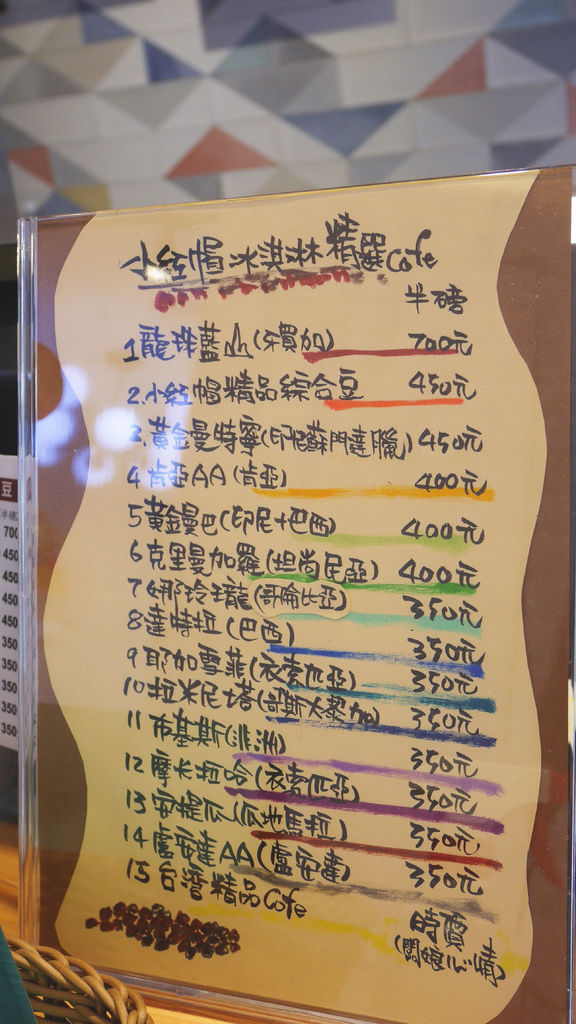 小紅帽冰淇淋精選Cafe
半磅
1龍珠藍山(牙買加) 700元
2.小紅帽精品綜合豆 450元
3.黃金曼特寧(印尼蘇門達臘) 450元
4肯亞AA(肯亞) 400元
5黃金曼巴(印尼+巴西) 400元
6克里曼加羅(坦尚尼亞) 400元
7娜玲瓏(哥倫比亞) 350元
8達特拉(巴西) 350元
9耶加雪菲(衣索匹亞) 350元
10拉米尼塔(哥斯大黎加) 350元
11布基斯(非洲) 350元
12摩卡拉哈(衣索匹亞) 350元
13安提瓜(瓜地馬拉) 350元
14盧安達AA(盧安達) 350元
15台灣精品Cafe 時價
(闆娘心情)
豆
半磅
700
450
450
400
400
400
350
350
350
350